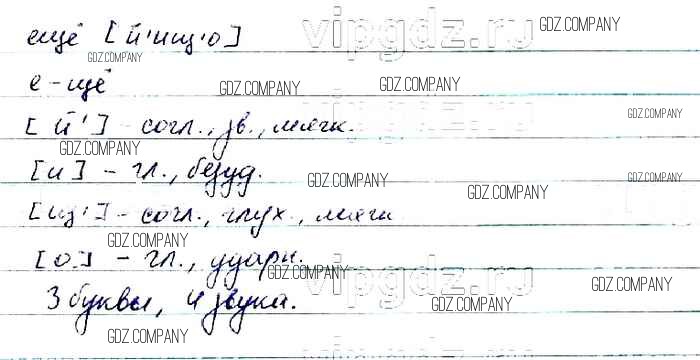 ещё [й'ищ'о]
е-щё
[й'] - согл., зв., мягк.
[и] - гл., безуд.
[щ'] - согл., глух., мягк
[о] - гл., ударн.
3 буквы, 4 звука.
vipgdz.ru
GDZ.COMPANY
GDZ.COMPANY
GDZ.COMPANY
GDZ.COMPANY
vipgdz.ru
GDZ.COMPANY
GDZ.COMPANY
GDZ.COMPANY
GDZ.COMPANY
GDZ.COMPANY
GDZ.COMPANY
GDZ.COMPANY
vipgdz.ru
GDZ.COMPANY
GDZ.COMPANY
GDZ.COMPANY
GDZ.COMPANY